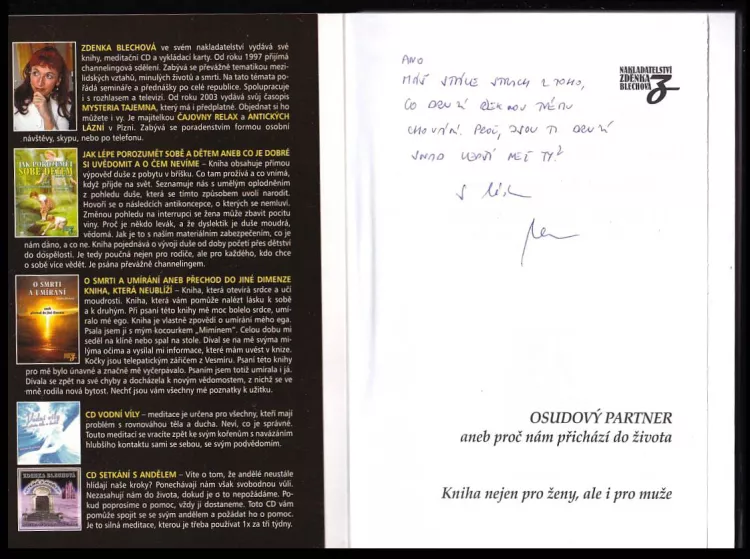 ZDENKA BLECHOVÁ ve svém nakladatelství vydává své
knihy, meditační CD a vykládací karty. Od roku 1997 přijímá
channelingová sdělení. Zabývá se převážně tematikou mezi-
lidských vztahů, minulých životů a smrti. Na tato témata po-
řádá semináře a přednášky po celé republice. Spolupracuje
i s rozhlasem a televizí. Od roku 2003 vydává svůj časopis
MYSTERIA TAJEMNA, který má i předplatné. Objednat si ho
můžete i vy. Je majitelkou ČAJOVNY RELAX a ANTICKÝCH
LÁZNÍ v Plzni. Zabývá se poradenstvím formou osobní
návštěvy, skypu, nebo po telefonu.
JAK POROZUMĚT
SOBĚ A DĚTEM
JAK LÉPE POROZUMĚT SOBĚ A DĚTEM ANEB CO JE DOBRÉ
SI UVĚDOMIT A O ČEM NEVÍME – Kniha obsahuje přímou
výpověď duše z pobytu v bříšku. Co tam prožívá a co vnímá,
když přijde na svět. Seznamuje nás s umělým oplodněním
z pohledu duše, která se tímto způsobem uvolí narodit.
Hovoří se o následcích antikoncepce, o kterých se nemluví.
Změnou pohledu na interrupci se žena může zbavit pocitu
viny. Proč je někdo levák, a že dyslektik je duše moudrá,
vědomá. Jak je to s naším materiálním zabezpečením, co je
nám dáno, a co ne. Kniha pojednává o vývoji duše od doby početí přes dětství
do dospělosti. Je tedy poučná nejen pro rodiče, ale pro každého, kdo chce
o sobě více vědět. Je psána převážně channelingem.
O SMRTI
A UMÍRÁNÍ
O SMRTI A UMÍRÁNÍ ANEB PŘECHOD DO JINÉ DIMENZE
KNIHA, KTERÁ NEUBLÍŽÍ – Kniha, která otevírá srdce a učí
moudrosti. Kniha, která vám pomůže nalézt lásku k sobě
a k druhým. Při psaní této knihy mě moc bolelo srdce, umí-
ralo mé ego. Kniha je vlastně zpovědí o umírání mého ega.
Psala jsem ji s mým kocourkem „Mimínem“. Celou dobu mi
seděl na klíně nebo spal na stole. Díval se na mě svýma mi-
lýma očima a vysílal mi informace, které mám uvést v knize.
Kočky jsou telepatickým zářičem z Vesmíru. Psaní této knihy
pro mě bylo únavné a značně mě vyčerpávalo. Psaním jsem totiž umírala i já.
Dívala se zpět na své chyby a docházela k novým vědomostem, z nichž se ve
mně rodila nová bytost. Nechť jsou vám všechny mé poznatky k užitku.
Vodní víly
CD VODNÍ VÍLY – meditace je určena pro všechny, kteří mají
problém s rovnováhou těla a ducha. Neví, co je správné.
Touto meditací se vracíte zpět ke svým kořenům s navázáním
hlubšího kontaktu sami se sebou, se svým podvědomím.
ZDENKA BLECHOVÁ
CD SETKÁNÍ S ANDĚLEM – Víte o tom, že andělé neustále
hlídají naše kroky? Ponechávají nám však svobodnou vůli.
Nezasahují nám do života, dokud je o to nepožádáme. Po-
kud poprosíme o pomoc, vždy ji dostaneme. Toto CD vám
pomůže spojit se se svým andělem a požádat ho o pomoc.
Je to silná meditace, kterou je třeba používat 1x za tři týdny.
ANO
MÁŠ STÁLE STRACH Z TOHO,
CO DRUZÍ ŘEKNOU TVÉMU
CHOVÁNÍ. PROČ, JSOU TI DRUZÍ
SNAD LEPŠÍ NEŽ TY?
NAKLADATELSTVÍ
ZDENKA
BLECHOVÁ
OSUDOVÝ PARTNER
aneb proč nám přichází do života
Kniha nejen pro ženy, ale i pro muže